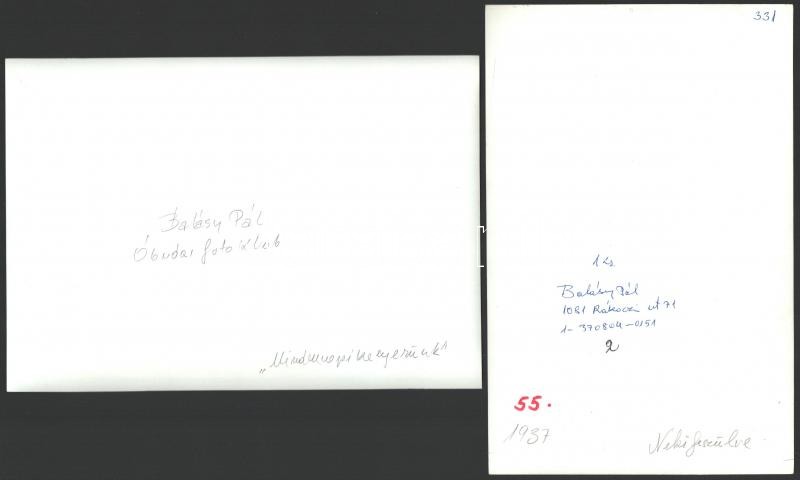 Balásy Pál
Óbudai fotóklub
„Mindennapi kenyerünk"
331
1 ks
Balásy Pál
1081 Rákóczi út 71
1-370804-0151
2
55.
1937
Nekifeszülve